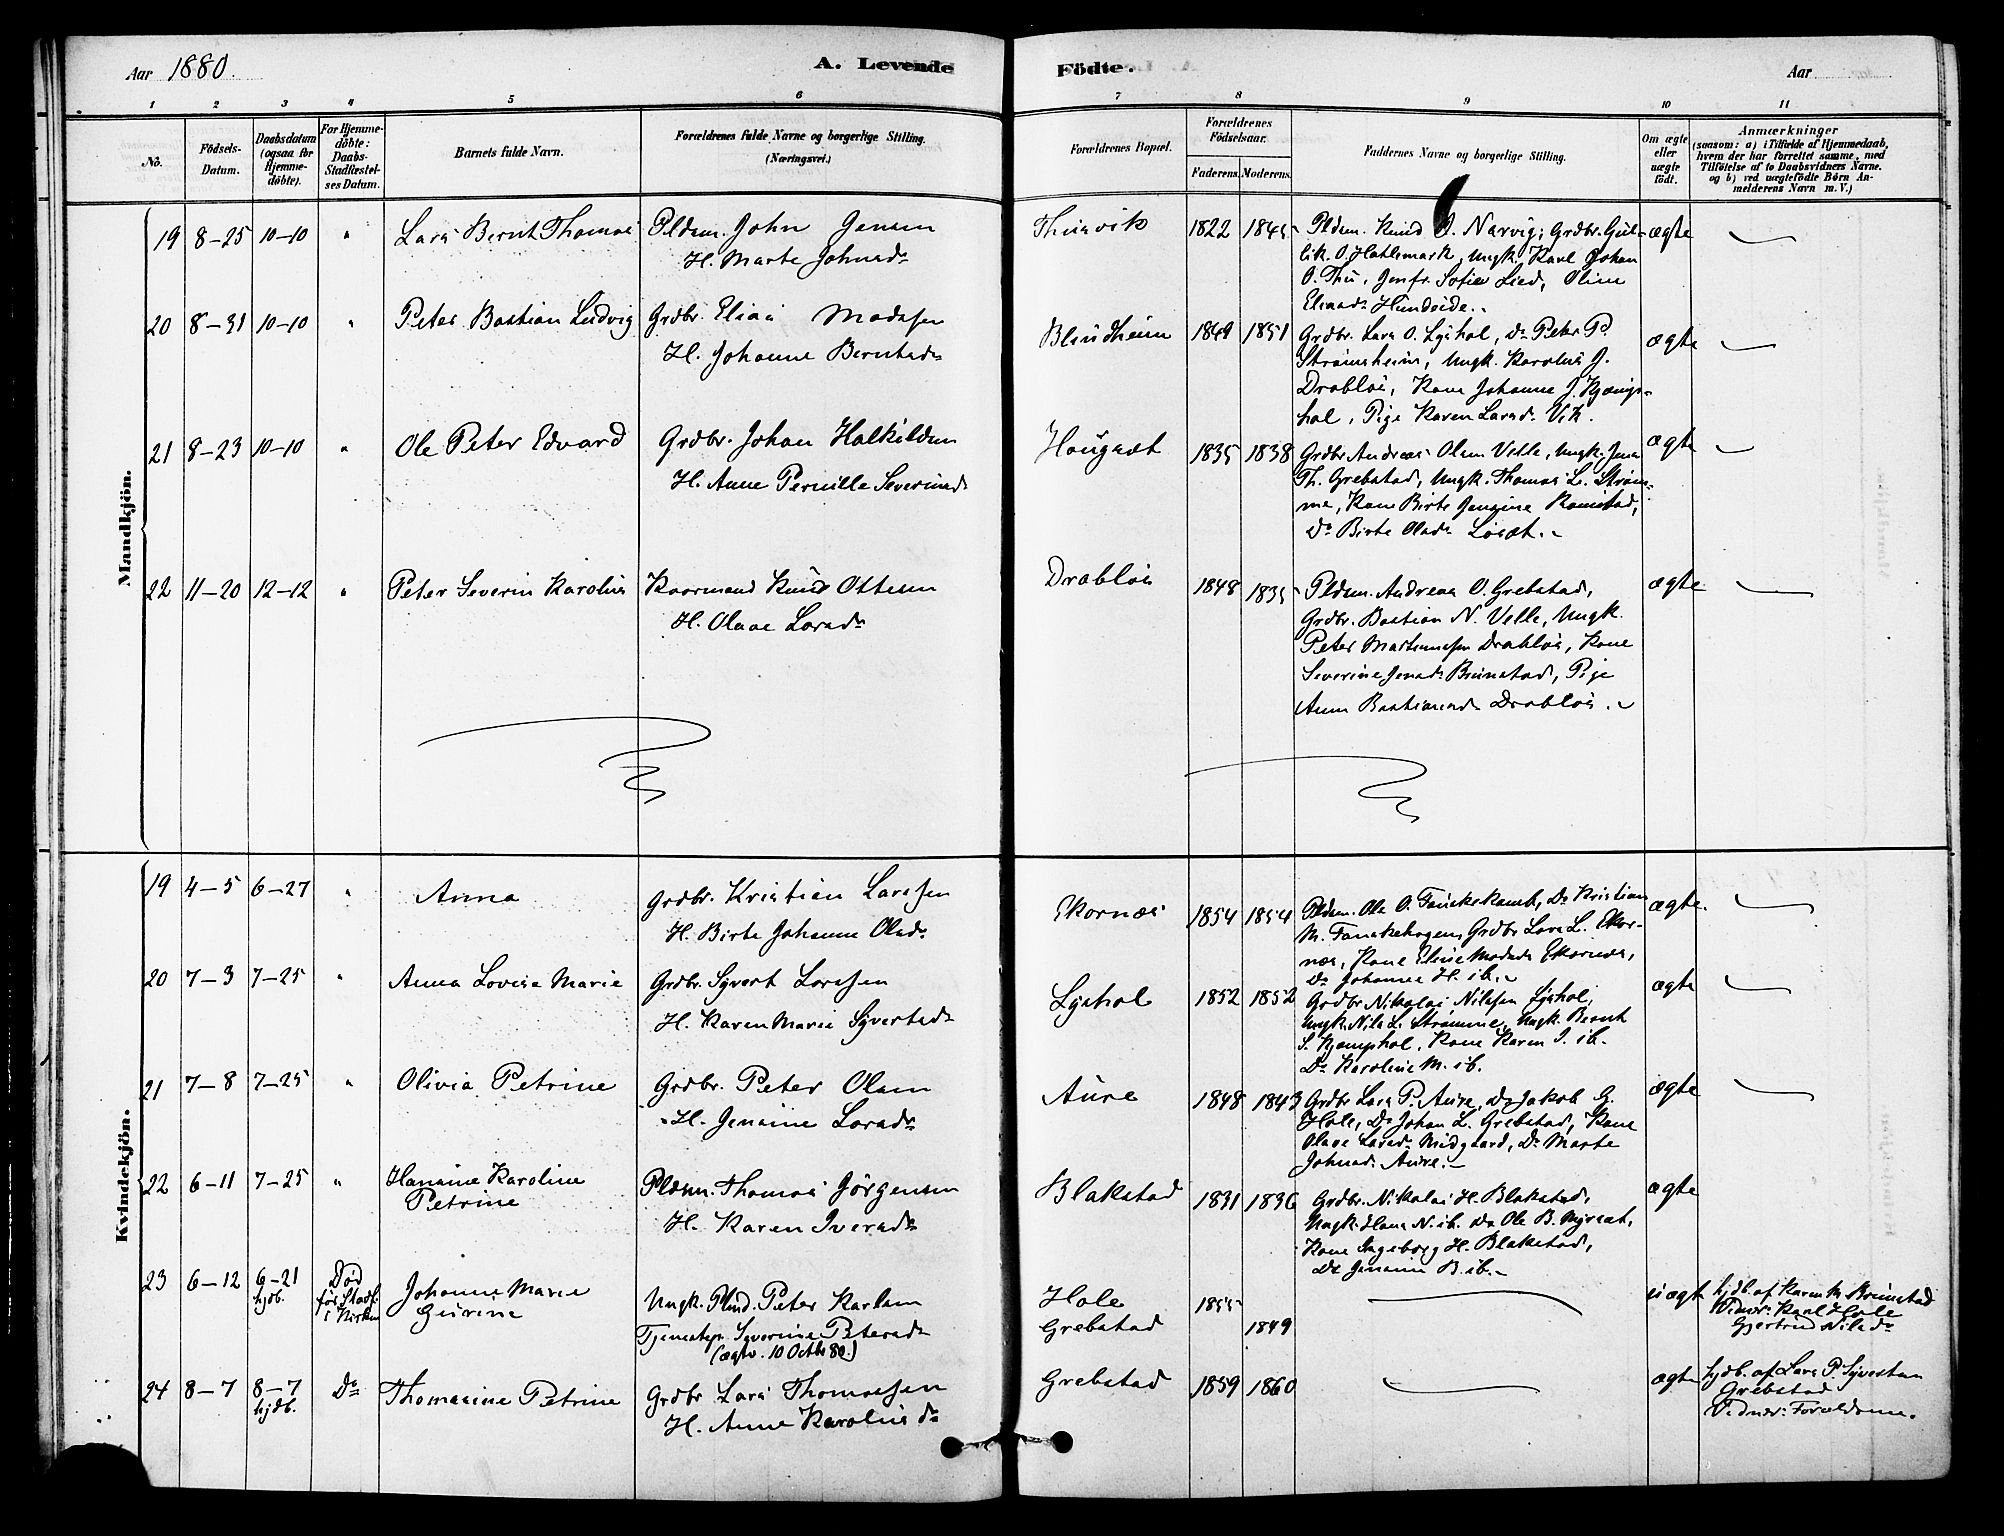 Aar 1880.
A. Levende
Fødte.
Aar
1 2 3 4 5 6 7 8 9 10 11
No.
Fødsels-
Datum.
Daabsdatum
(ogsaa for
Hjemme-
døbte).
For Hjemme-
døbte:
Daabs-
Stadfæstel-
ses Datum.
Barnets fulde Navn.
Forældrenes fulde Navne og borgerlige Stilling.
(Næringsvei.)
Forældrenes Bopæl.
Forældrenes
Fødselsaar.
Faderens. Moderens.
Faddernes Navne og borgerlige Stilling.
Om ægte
eller
uægte
født.
Anmærkninger
(saasom: a) i Tilfælde af Hjemmedaab,
hvem der har forrettet samme, med
Tilføielse af to Daabsvidners Navne.
og b) ved uægtefødte Børn An-
melderens Navn m. V.)
Mandkjön.
19 8-25 10-10 " Lars Bernt Thomas Pldsm. John Jensen
H. Marte Johnsdr
Thusvik 1822 1845 Pldsm. Knud O. Narvig; Grdbr. Gul-
lik O. Hatlemark, Ungk. Karl Johan
O. Thu, Jomfr. Sofie Lied, Oline
Eliasdr Hundeide.
ægte
20 8-31 10-10 " Peter Bastian Ludvig Grdbr. Elias Madssen
H. Johanne Berntsdr
Blindheim 1849 1851 Grdbr. Lars O. Lyshol, Do Peter P.
Strømsheim, Ungk. Karolus J.
Drabløs, Kone Johanne J. Kjæmps-
hol, Pige Karen Larsdr Vik.
ægte
21 8-23 10-10 " Ole Peter Edvard Grdbr. Johan Halkildsen
H. Anne Pernille Severinsdr
Hougset 1835 1838 Grdbr Andreas Olsen Velle, Ungk. Jens
Th. Grebstad, Ungk. Thomas L. Strøm-
me, Kone Birte Jensine Ramstad,
Do Birte Olsdr Løset.
ægte
22 11-20 12-12 " Peter Severin Karolus Kaarmand Knud Ottesen
H. Olave Larsdr
Drabløs 1848 1835 Pldsm. Andreas O. Grebstad,
Grdbr. Bastian N. Velle, Ungk.
Peter Martinussen Drabløs, Kone
Severine Jensdr Brunstad, Pige
Anne Bastiansdr Drabløs.
ægte
Kvindekjön.
19 4-5 6-27 " Anna Grdbr. Kristian Larssen
H. Birte Johanne Olsdr
Ekornæs 1854 1854 Pldsm. Ole O. Fauskekamb, Do Kristian
M. Fauskehagen, Grdbr Lars L. Ekor-
næs, Kone Eline Madsdr Ekornæs,
Do Johanne H. ib.
ægte.
20 7-3 7-25 " Anna Lovise Marie Grdbr. Syvert Larssen
H. Karen Marie Syvertsdr
Lyshol 1852 1852 Grdbr. Nikolai Nilssen Lyshol,
Ungk. Nils L. Strømme, Ungk. Bernt
S. Kjæmphol, Kone Karen I. ib.
Do Karoline M. ib.
ægte
21 7-8 7-25 " Olivia Petrine Grdbr. Peter Olsen
H. Jensine Larsdr
Aure 1848 1843 Grdbr Lars P. Aure, Do Jakob G.
Hole, Do Johan L. Grebstad, Kone
Olave Larsdr Midgaard, Do Marte
Johnsdr Aure.
ægte
22 6-11 7-25 " Hansine Karoline
Petrine
Pldsm. Thomas Jørgensen
H. Karen Iversdr
Blakstad 1831 1836 Grdbr. Nikolai H. Blakstad,
Ungk. Hans N. ib. Do Ole B. Myrset,
Kone Ingeborg H. Blakstad,
Do Jensine B. ib.
ægte
23 6-12 6-21
hjdb.
Død
før Stadf.
i Kirken
Johanne Marie
Gurine
Ungk. Plmd. Peter Karlsen
Tjenestep. Syverine Petersdr
(ægtv. 10 Octbr 80.)
Hole
Grebstad
1855
1849
uægte
hjdb. af Karen M. Brunstad
Vidner: Karl Hole
Gjertrud Nilsdr
24 8-7 8-7
hjdb.
Do Thomasine Petrine Grdbr Lars Thomassen
H. Anne Karolusdr
Grebstad 1859 1860
ægte
hjdb. af Lars P. Syvertsen
Grebstad
Vidner: Forældrene.